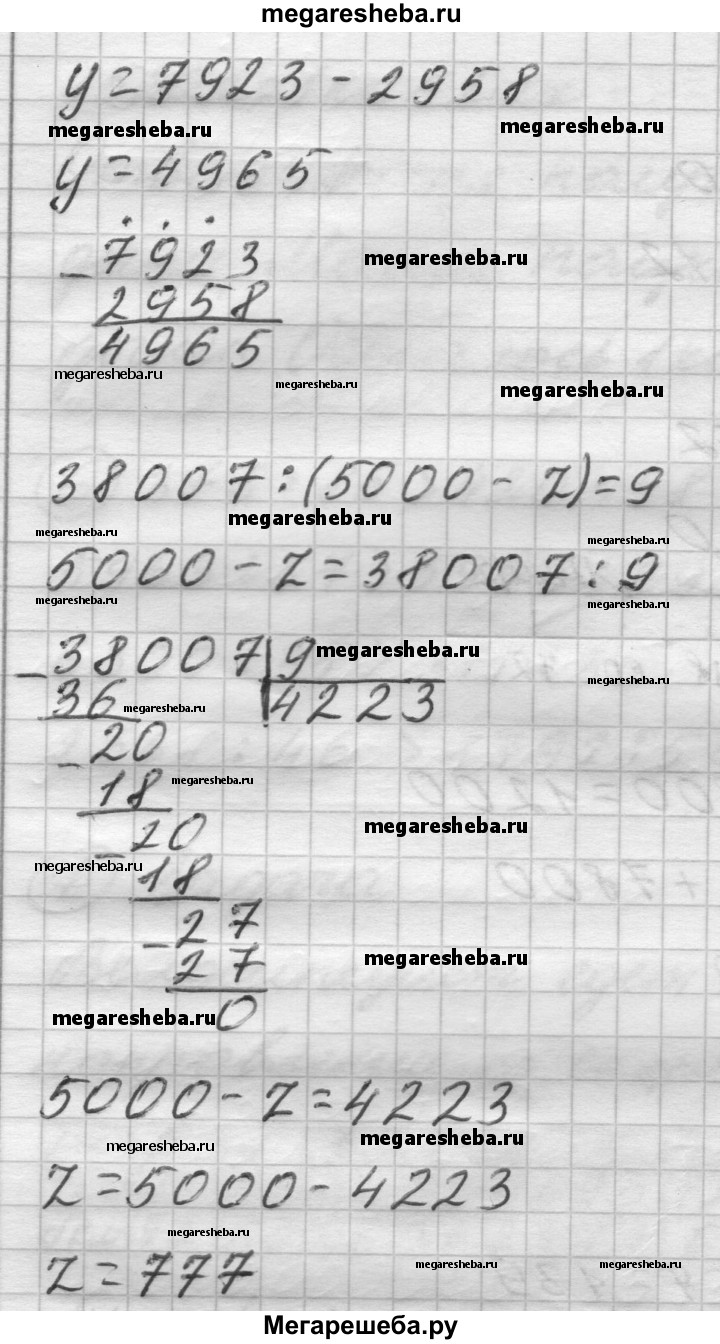 megaresheba.ru
y = 7923 - 2958
megaresheba.ru megaresheba.ru
y = 4965
. . .
- 7923 megaresheba.ru
2958
4965
megaresheba.ru megaresheba.ru megaresheba.ru
38007 : (5000 - z) = 9
megaresheba.ru megaresheba.ru megaresheba.ru
5000 - z = 38007 : 9
megaresheba.ru megaresheba.ru
- 38007 | 9 megaresheba.ru
36 megaresheba.ru 4223 megaresheba.ru
- 20
18 megaresheba.ru
- 20 megaresheba.ru
megaresheba.ru 18
- 27
27 megaresheba.ru
megaresheba.ru 0
5000 - z = 4223
megaresheba.ru megaresheba.ru
z = 5000 - 4223
megaresheba.ru
z = 777 megaresheba.ru megaresheba.ru
Мегарешеба.ру